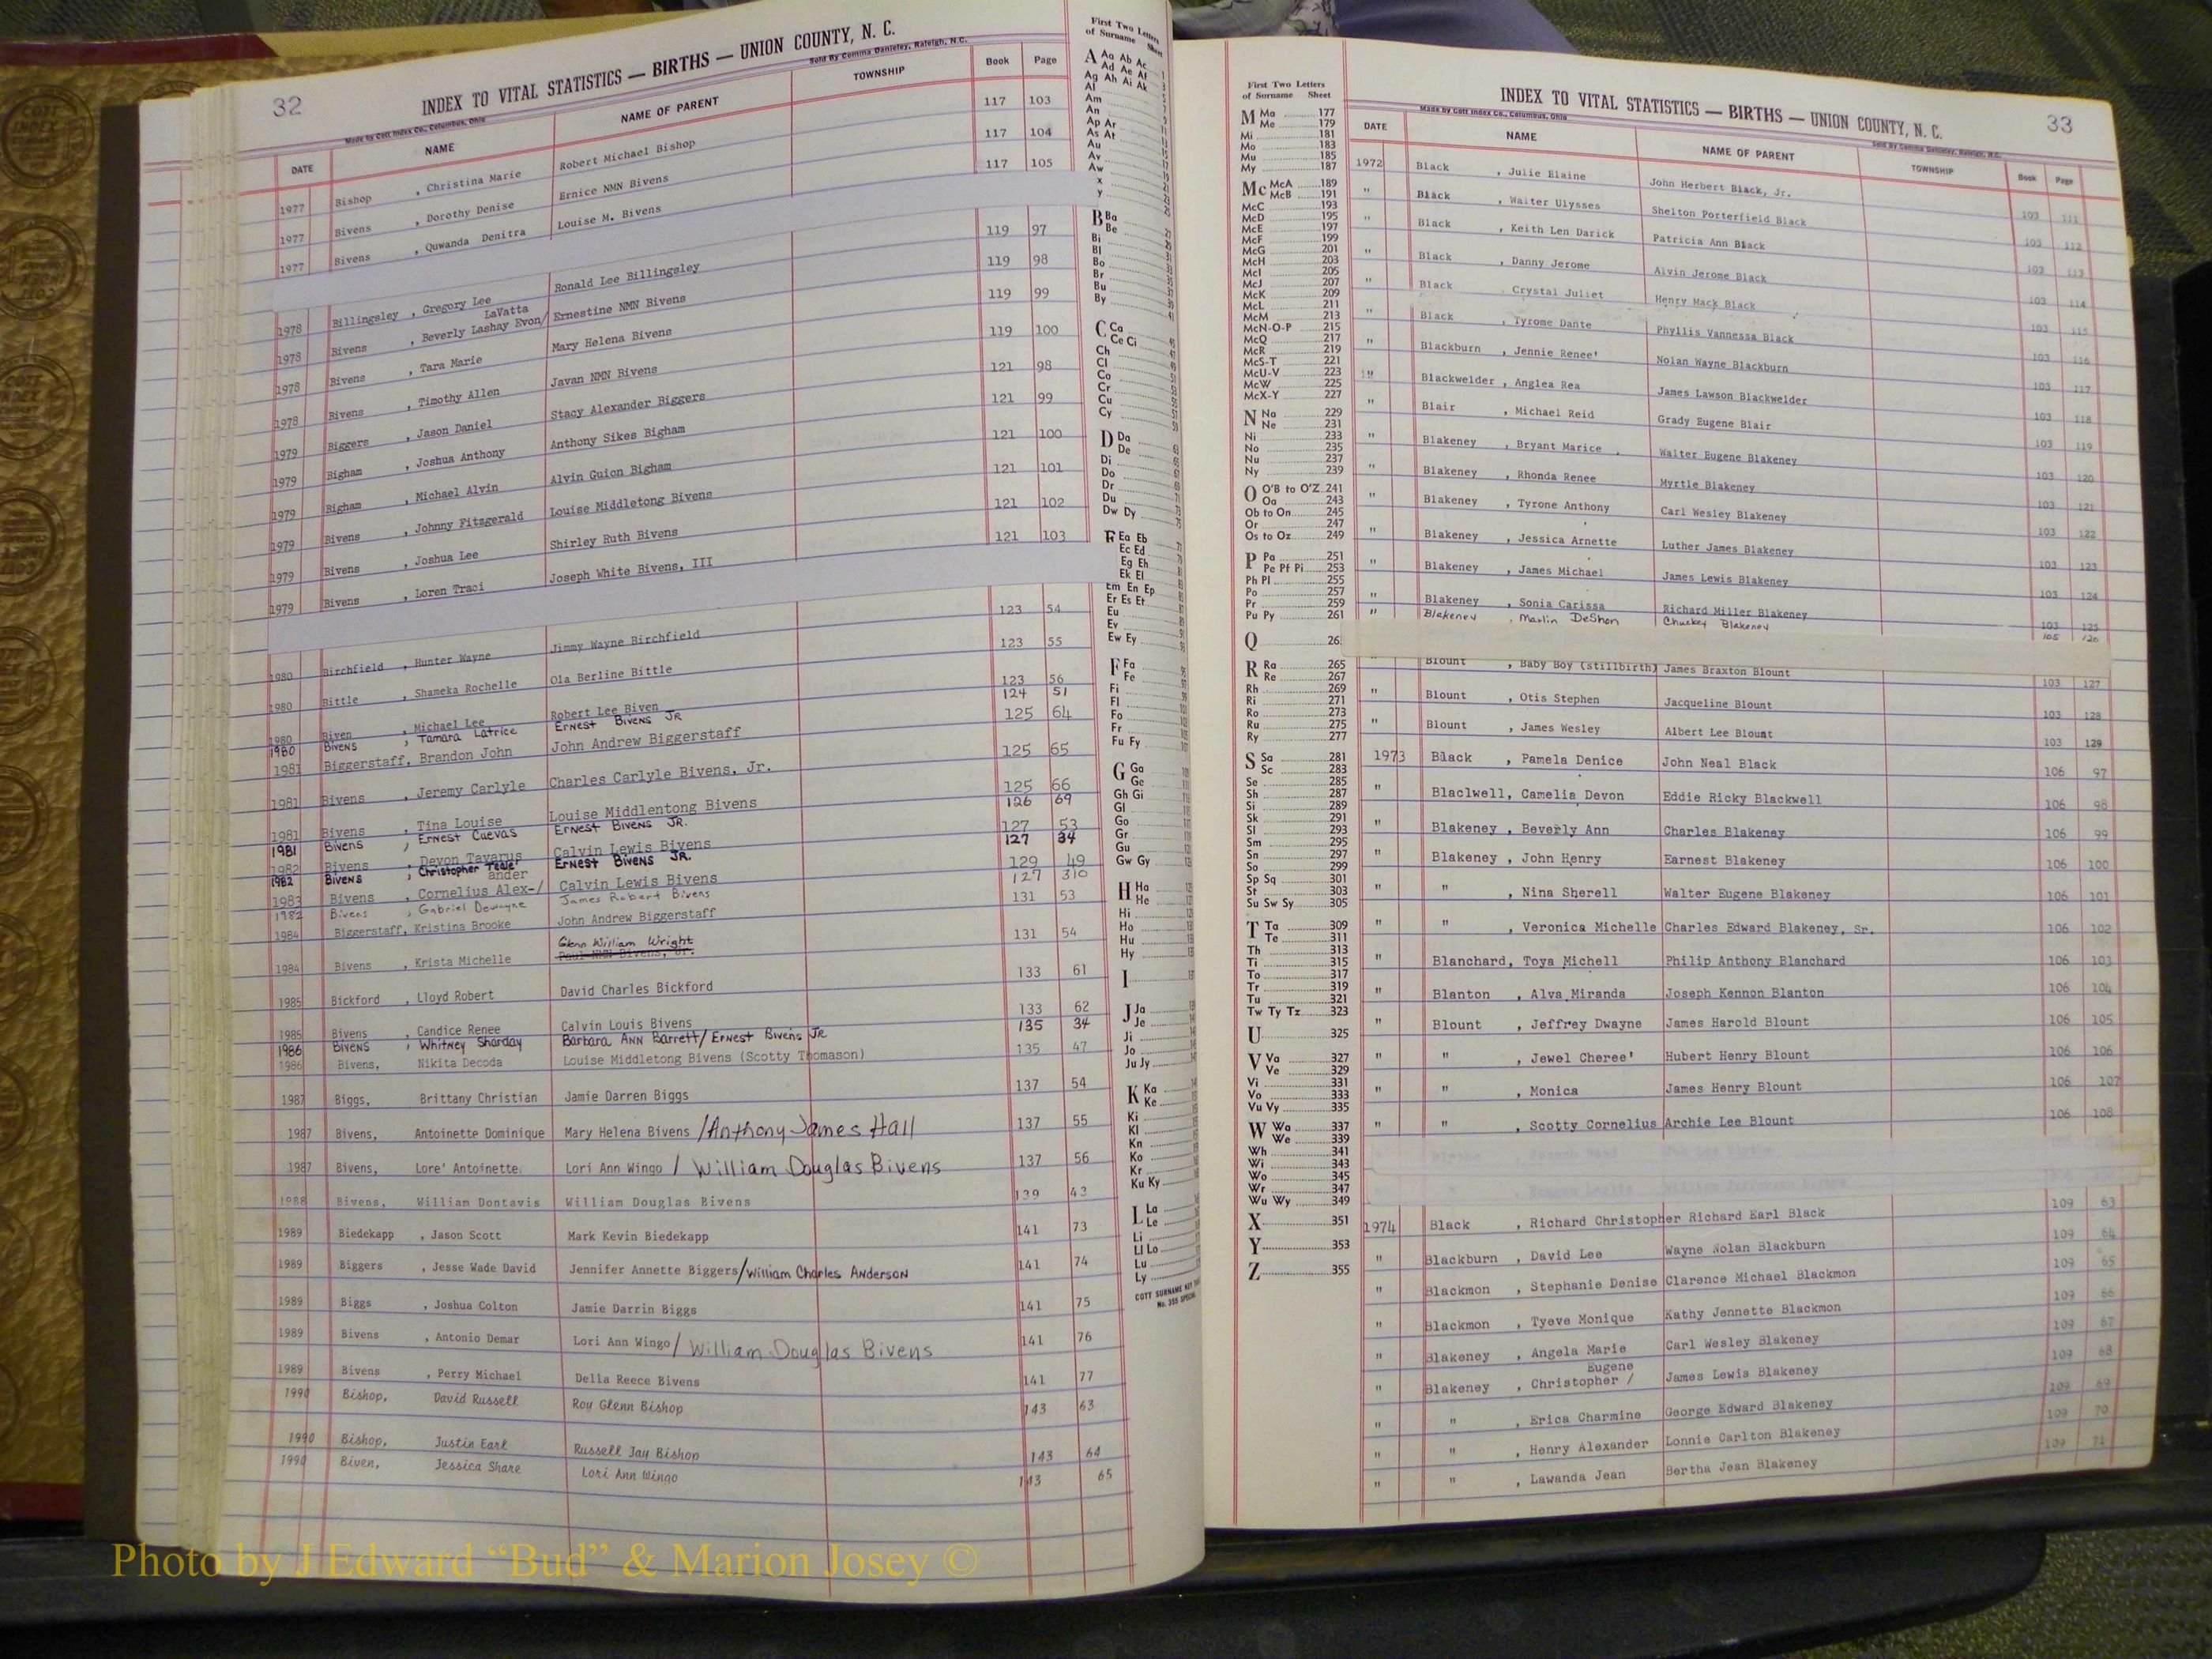 32
INDEX TO VITAL STATISTICS — BIRTHS — UNION COUNTY, N. C.
Made by Cott Index Co., Columbus, Ohio
Sold By Comma Danieley, Raleigh, N.C.
DATE NAME NAME OF PARENT TOWNSHIP Book Page
1977 Bishop , Christina Marie Robert Michael Bishop 117 103
1977 Bivens , Dorothy Denise Ernice NMN Bivens 117 104
1977 Bivens , Quwanda Denitra Louise M. Bivens 117 105
1978 Billingsley , Gregory Lee Ronald Lee Billingsley 119 97
LaVatta
1978 Bivens , Beverly Lashay Evon/ Ernestine NMN Bivens 119 98
1978 Bivens , Tara Marie Mary Helena Bivens 119 99
1978 Bivens , Timothy Allen Javan NMN Bivens 119 100
1979 Biggers , Jason Daniel Stacy Alexander Biggers 121 98
1979 Bigham , Joshua Anthony Anthony Sikes Bigham 121 99
1979 Bigham , Michael Alvin Alvin Guion Bigham 121 100
1979 Bivens , Johnny Fitzgerald Louise Middletong Bivens 121 101
1979 Bivens , Joshua Lee Shirley Ruth Bivens 121 102
1979 Bivens , Loren Traci Joseph White Bivens, III 121 103
1980 Birchfield , Hunter Wayne Jimmy Wayne Birchfield 123 54
1980 Bittle , Shameka Rochelle Ola Berline Bittle 123 55
1980 Biven , Michael Lee Robert Lee Biven 123 56
1980 Bivens , Tamara Latrice Ernest Bivens JR 124 51
1981 Biggerstaff, Brandon John John Andrew Biggerstaff 125 64
1981 Bivens , Jeremy Carlyle Charles Carlyle Bivens, Jr. 125 65
1981 Bivens , Tina Louise Louise Middlentong Bivens 125 66
1981 Bivens , Ernest Cuevas Ernest Bivens JR. 126 69
1982 Bivens , Devon Tavarus Calvin Lewis Bivens 127 53
1982 Bivens , Christopher Ernest Bivens JR. 127 34
ander
1983 Bivens , Cornelius Alex-/ Calvin Lewis Bivens 129 49
1982 Bivens , Gabriel Dewayne James Robert Bivens 127 310
1984 Biggerstaff, Kristina Brooke John Andrew Biggerstaff 131 53
Glenn William Wright
1984 Bivens , Krista Michelle Paul NMN Bivens, Jr. 131 54
1985 Bickford , Lloyd Robert David Charles Bickford 133 61
1985 Bivens , Candice Renee Calvin Louis Bivens 133 62
1986 Bivens , Whitney Sharday Barbara Ann Barrett/Ernest Bivens JR 135 34
1986 Bivens, Nikita Decoda Louise Middletong Bivens (Scotty Thomason) 135 47
1987 Biggs, Brittany Christian Jamie Darren Biggs 137 54
1987 Bivens, Antoinette Dominique Mary Helena Bivens /Anthony James Hall 137 55
1987 Bivens, Lore' Antoinette Lori Ann Wingo / William Douglas Bivens 137 56
1988 Bivens, William Dontavis William Douglas Bivens 139 43
1989 Biedekapp , Jason Scott Mark Kevin Biedekapp 141 73
1989 Biggers , Jesse Wade David Jennifer Annette Biggers/William Charles Anderson 141 74
1989 Biggs , Joshua Colton Jamie Darrin Biggs 141 75
1989 Bivens , Antonio Demar Lori Ann Wingo / William Douglas Bivens 141 76
1989 Bivens , Perry Michael Della Reece Bivens 141 77
1990 Bishop, David Russell Roy Glenn Bishop 143 63
1990 Bishop, Justin Earl Russell Jay Bishop 143 64
1990 Biven, Jessica Share Lori Ann Wingo 143 65
First Two Letters
of Surname Sheet
A Aa Ab Ac
Ad Ae Af
Ag Ah Ai Ak
Al
Am
An
Ap Ar
As At
Au
Av
Aw
x
y
B Ba
Be
Bi
Bl
Bo
Br
Bu
By
C Ca
Ce Ci
Ch
Cl
Co
Cr
Cu
Cy
D Da
De
Di
Do
Dr
Du
Dw Dy
E Ea Eb
Ec Ed
Eg Eh
Ek El
Em En Ep
Er Es Et
Eu
Ev
Ew Ey
F Fa
Fe
Fi
Fl
Fo
Fr
Fu Fy
G Ga
Ge
Gh Gi
Gl
Go
Gr
Gu
Gw Gy
H Ha
He
Hi
Ho
Hu
Hy
I
J Ja
Je
Ji
Jo
Ju Jy
K Ka
Ke
Ki
Kl
Kn
Ko
Kr
Ku Ky
L La
Le
Li
Ll Lo
Lu
Ly
COTT SURNAME KEY
No. 355 SPECIAL
First Two Letters
of Surname Sheet
M Ma 177
Me 179
Mi 181
Mo 183
Mu 185
My 187
Mc McA 189
McB 191
McC 193
McD 195
McE 197
McF 199
McG 201
McH 203
McI 205
McJ 207
McK 209
McL 211
McM 213
McN-O-P 215
McQ 217
McR 219
McS-T 221
McU-V 223
McW 225
McX-Y 227
N Na 229
Ne 231
Ni 233
No 235
Nu 237
Ny 239
O O'B to O'Z 241
Oa 243
Ob to On 245
Or 247
Os to Oz 249
P Pa 251
Pe Pf Pi 253
Ph Pl 255
Po 257
Pr 259
Pu Py 261
Q 26
R Ra 265
Re 267
Rh 269
Ri 271
Ro 273
Ru 275
Ry 277
S Sa 281
Sc 283
Se 285
Sh 287
Si 289
Sk 291
Sl 293
Sm 295
Sn 297
So 299
Sp Sq 301
St 303
Su Sw Sy 305
T Ta 309
Te 311
Th 313
Ti 315
To 317
Tr 319
Tu 321
Tw Ty Tz 323
U 325
V Va 327
Ve 329
Vi 331
Vo 333
Vu Vy 335
W Wa 337
We 339
Wh 341
Wi 343
Wo 345
Wr 347
Wu Wy 349
X 351
Y 353
Z 355
INDEX TO VITAL STATISTICS — BIRTHS — UNION COUNTY, N. C.
33
Made by Cott Index Co., Columbus, Ohio
Sold By Comma Danieley, Raleigh, N.C.
DATE NAME NAME OF PARENT TOWNSHIP Book Page
1972 Black , Julie Elaine John Herbert Black, Jr. 103 111
" Black , Walter Ulysses Shelton Porterfield Black 103 112
" Black , Keith Len Darick Patricia Ann Black 103 113
" Black , Danny Jerome Alvin Jerome Black 103 114
" Black Crystal Juliet Henry Mack Black 103 115
" Black , Tyrome Dante Phyllis Vannessa Black 103 116
" Blackburn , Jennie Renee' Nolan Wayne Blackburn 103 117
" Blackwelder , Anglea Rea James Lawson Blackwelder 103 118
" Blair , Michael Reid Grady Eugene Blair 103 119
" Blakeney , Bryant Marice Walter Eugene Blakeney 103 120
" Blakeney , Rhonda Renee Myrtle Blakeney 103 121
" Blakeney , Tyrone Anthony Carl Wesley Blakeney 103 122
" Blakeney , Jessica Arnette Luther James Blakeney 103 123
" Blakeney , James Michael James Lewis Blakeney 103 124
" Blakeney , Sonia Carissa Richard Miller Blakeney 103 125
" Blakeney , Marlin DeShon Chuckey Blakeney 105 120
" Blount , Baby Boy (stillbirth) James Braxton Blount 103 127
" Blount , Otis Stephen Jacqueline Blount 103 128
" Blount , James Wesley Albert Lee Blount 103 129
1973 Black , Pamela Denice John Neal Black 106 97
" Blaclwell, Camelia Devon Eddie Ricky Blackwell 106 98
" Blakeney , Beverly Ann Charles Blakeney 106 99
" Blakeney , John Henry Earnest Blakeney 106 100
" " , Nina Sherell Walter Eugene Blakeney 106 101
" " , Veronica Michelle Charles Edward Blakeney, Sr. 106 102
" Blanchard, Toya Michell Philip Anthony Blanchard 106 103
" Blanton , Alva Miranda Joseph Kennon Blanton 106 104
" Blount , Jeffrey Dwayne James Harold Blount 106 105
" " , Jewel Cheree' Hubert Henry Blount 106 106
" " , Monica James Henry Blount 106 107
" " , Scotty Cornelius Archie Lee Blount 106 108
1974 Black , Richard Christopher Richard Earl Black 109 63
" Blackburn , David Lee Wayne Nolan Blackburn 109 64
" Blackmon , Stephanie Denise Clarence Michael Blackmon 109 65
" Blackmon , Tyeve Monique Kathy Jennette Blackmon 109 66
" Blakeney , Angela Marie Carl Wesley Blakeney 109 67
Eugene
" Blakeney , Christopher / James Lewis Blakeney 109 68
" " , Erica Charmine George Edward Blakeney 109 69
" " , Henry Alexander Lonnie Carlton Blakeney 109 70
" " , Lawanda Jean Bertha Jean Blakeney 109 71
Photo by J Edward “Bud” & Marion Josey ©